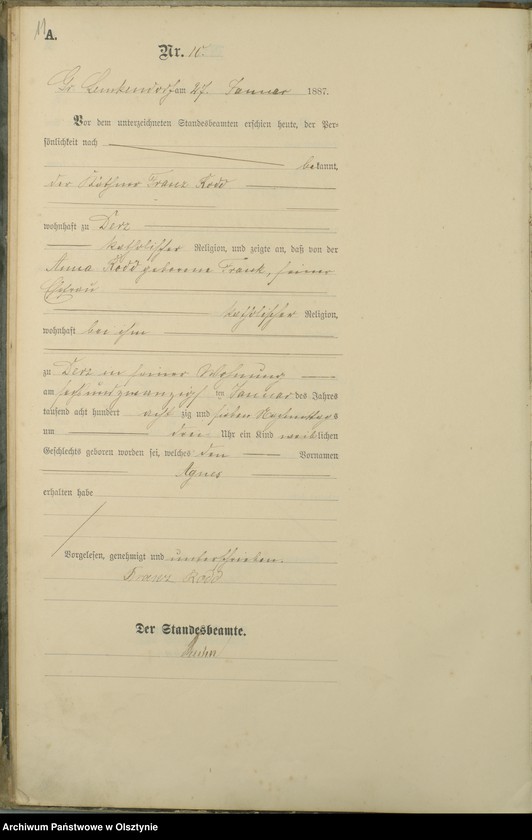 11
A.
Nr. 10.
Gr. Lemkendorf am 27. Januar 1887.
Vor dem unterzeichneten Standesbeamten erschien heute, der Per-
sönlichkeit nach
bekannt,
der Käthner Franz Kodd
wohnhaft zu Derz
katholischer Religion, und zeigte an, daß von der
Anna Kodd geborene Frank, seiner
Ehefrau
katholischer Religion,
wohnhaft bei ihm
zu Derz in seiner Wohnung
am sechsundzwanzigsten Januar des Jahres
tausend acht hundert achtzig und sieben Nachmittags
um drei Uhr ein Kind weiblichen
Geschlechts geboren worden sei, welches den Vornamen
Agnes
erhalten habe
Vorgelesen, genehmigt und unterschrieben.
Franz Kodd
Der Standesbeamte.
Archiwum Państwowe w Olsztynie